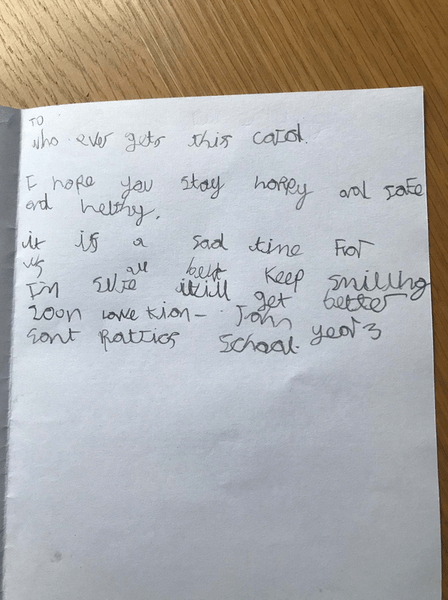 TO
who ever gets this card.
I hope you stay happy and safe
and helthy.
it is a sad time for
us all but keep smilling
Im sure it will get better
soon love
Sant Pattics School. year 3